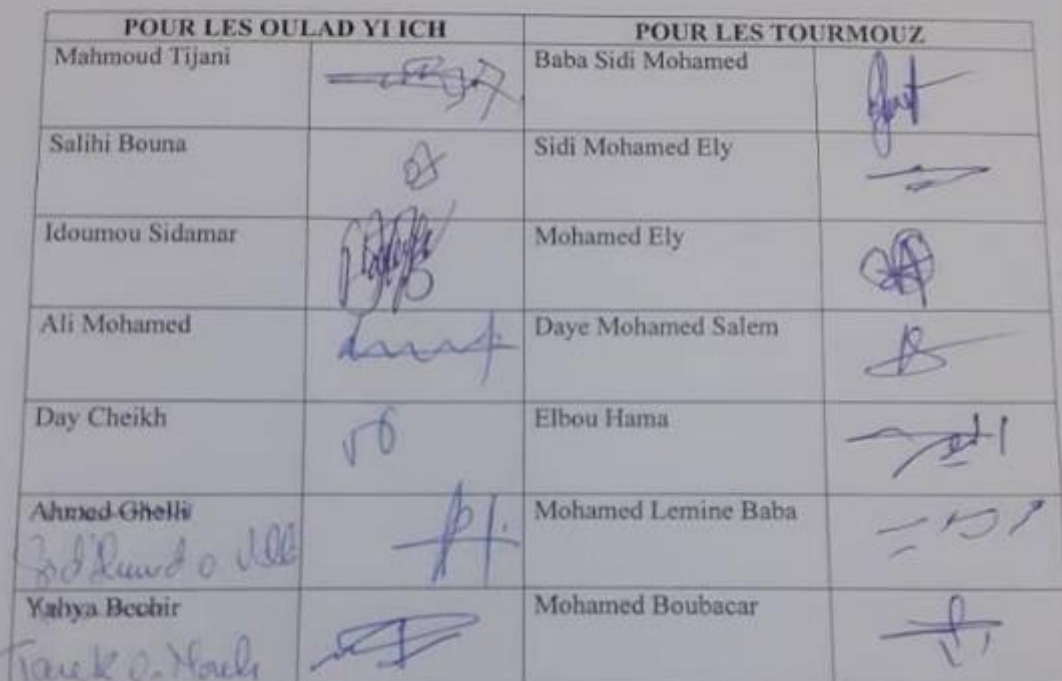 POUR LES OULAD YI ICH POUR LES TOURMOUZ
Mahmoud Tijani Baba Sidi Mohamed
Salihi Bouna Sidi Mohamed Ely
Idoumou Sidamar Mohamed Ely
Ali Mohamed Daye Mohamed Salem
Day Cheikh Elbou Hama
Ahmed Ghelli Mohamed Lemine Baba
Yahya Bechir Mohamed Boubacar